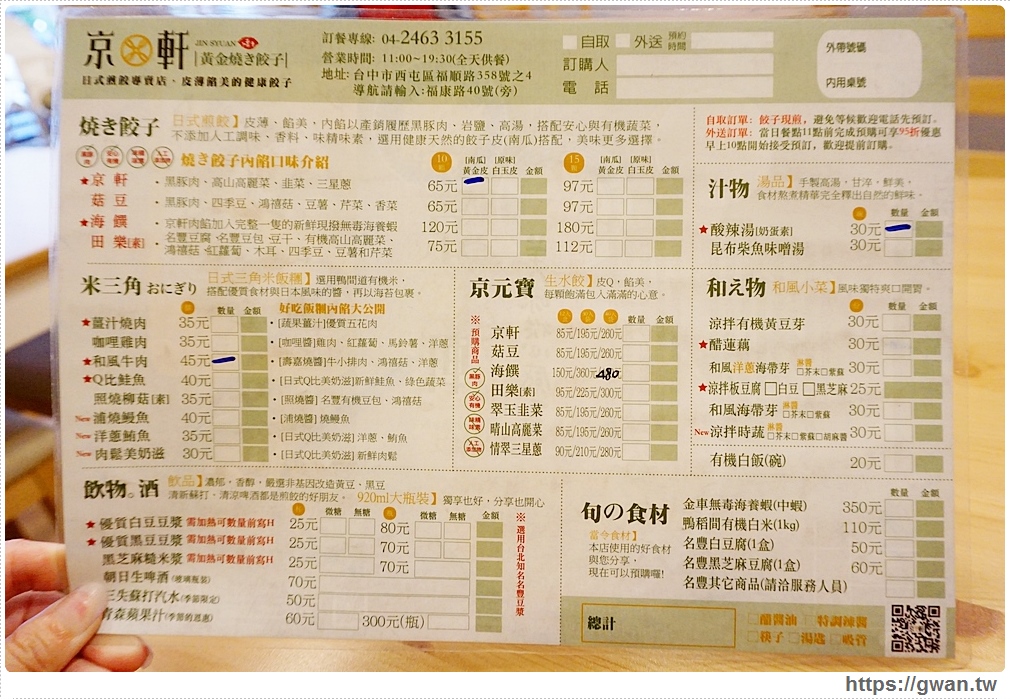 京軒 JIN-SYUAN
黃金燒き餃子
日式煎餃專賣店、皮薄餡美的健康餃子
訂餐專線: 04-2463 3155
營業時間: 11:00~19:30(全天供餐)
地址: 台中市西屯區福順路358號之4
導航請輸入:福康路40號(旁)
自取 外送 預約時間
訂購人
電話
外帶號碼
內用桌號
燒き餃子 日式煎餃】皮薄、餡美，內餡以產銷履歷黑豚肉、岩鹽、高湯，搭配安心與有機蔬菜，
不添加人工調味、香料、味精味素，選用健康天然的餃子皮(南瓜)搭配，美味更多選擇。
燒き餃子內餡口味介紹 10 [南瓜]黃金皮 [原味]白玉皮 金額 15 [南瓜]黃金皮 [原味]白玉皮 金額
★京軒 • 黑豚肉、高山高麗菜、韭菜、三星蔥 65元 97元
菇豆 • 黑豚肉、四季豆、鴻禧菇、豆薯、芹菜、香菜 65元 97元
★海饌 • 京軒肉餡加入完整一隻的新鮮現撥無毒海養蝦 120元 180元
田樂[素] • 名豐豆腐、名豐豆包、豆干、有機高山高麗菜、鴻禧菇、紅蘿蔔、木耳、四季豆、豆薯和芹菜 75元 112元
自取訂單: 餃子現煎，避免等候歡迎電話先預訂。
外送訂單: 當日餐點11點前完成預購可享95折優惠
早上10點開始接受預訂，歡迎提前訂購。
汁物 湯品】手製高湯，甘淬，鮮美，
食材熬煮精華完全釋出自然的鮮味。
數量 金額
★酸辣湯(奶蛋素) 30元
昆布柴魚味噌湯 30元
米三角 おにぎり 日式三角米飯糰】選用鴨間道有機米，
搭配優質食材與日本風味的醬，再以海苔包裹。
數量 金額 好吃飯糰內餡大公開
★薑汁燒肉 35元 • [蔬果薑汁]優質五花肉
咖哩雞肉 35元 • [咖哩醬]雞肉、紅蘿蔔、馬鈴薯、洋蔥
★和風牛肉 45元 • [壽嘉燒醬]牛小排肉、鴻禧菇、洋蔥
★Q比鮭魚 40元 • [日式Q比美奶滋]新鮮鮭魚、綠色蔬菜
照燒柳菇[素] 35元 • [照燒醬]名豐有機豆包、鴻禧菇
New浦燒鰻魚 40元 • [浦燒醬]燒鰻魚
New洋蔥鮪魚 35元 • [日式Q比美奶滋]洋蔥、鮪魚
New肉鬆美奶滋 30元 • [日式Q比美奶滋]新鮮肉鬆
京元寶 生水餃】皮Q，餡美，
每顆飽滿包入滿滿的心意。
※預購商品
數量 金額
京軒 85元/195元/260元
菇豆 85元/195元/260元
海饌 150元/360元/480
田樂[素] 95元/225元/300元
翠玉韭菜 85元/195元/260元
晴山高麗菜 85元/195元/260元
情翠三星蔥 90元/210元/280元
和え物 和風小菜】風味獨特爽口開胃。
數量 金額
涼拌有機黃豆芽 30元
★醋蓮藕 30元
和風洋蔥海帶芽 淋醬 □芥末□紫蘇 30元
★涼拌板豆腐□白豆 □黑芝麻 25元
和風海帶芽 淋醬 □芥末□紫蘇 30元
New涼拌時蔬 淋醬 □芥末□紫蘇□胡麻醬 30元
有機白飯(碗) 20元
飲物。酒 飲品】濃郁，香醇，嚴選非基因改造黃豆、黑豆
清新蘇打，清涼啤酒都是煎餃的好朋友。 920ml大瓶裝】獨享也好，分享也開心
微糖 無糖 微糖 無糖 金額
★優質白豆豆漿 需加熱可數量前寫H 25元 80元
★優質黑豆豆漿 需加熱可數量前寫H 25元 70元
黑芝麻糙米漿 需加熱可數量前寫H 25元 70元
朝日生啤酒(玻璃瓶裝) 70元
三矢蘇打汽水(季節限定) 50元
青森蘋果汁(季節的恩惠) 60元 300元(瓶)
※選用台北知名名豐豆漿
旬の食材
當令食材】
本店使用的好食材
與您分享，
現在可以預購喔!
數量 金額
金車無毒海養蝦(中蝦) 350元
鴨稻間有機白米(1kg) 110元
名豐白豆腐(1盒) 50元
名豐黑芝麻豆腐(1盒) 60元
名豐其它商品(請洽服務人員)
總計
□醋醬油 □特調辣醬
□筷子 □湯匙 □吸管
https://gwan.tw